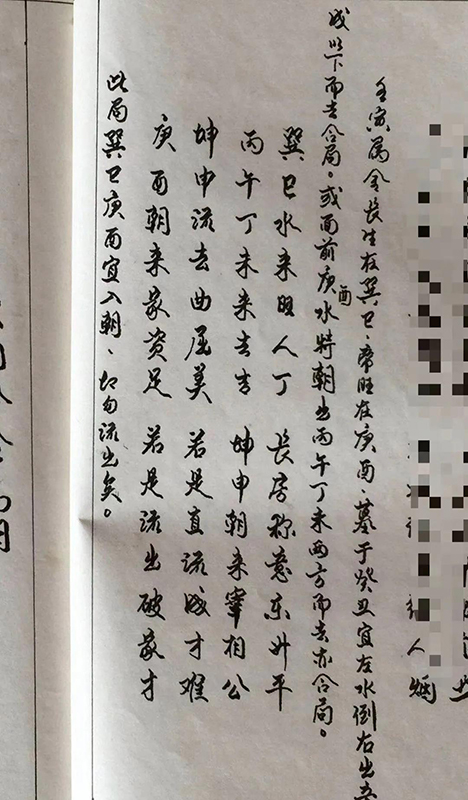 壬寅属金长生在巽巳、帝旺在庚酉、墓于癸丑宜左水倒右出
或以下而去合局。或面前庚酉水特朝出丙午丁未两方而去亦合局。
巽巳水来旺人丁 长房称意乐升平
丙午丁未来去吉 坤申朝来宰相公
坤申流去曲屈美 若是直流成才难
庚酉朝来家资足 若是流出破家才
此局巽巳庚酉宜入朝、切勿流出矣。